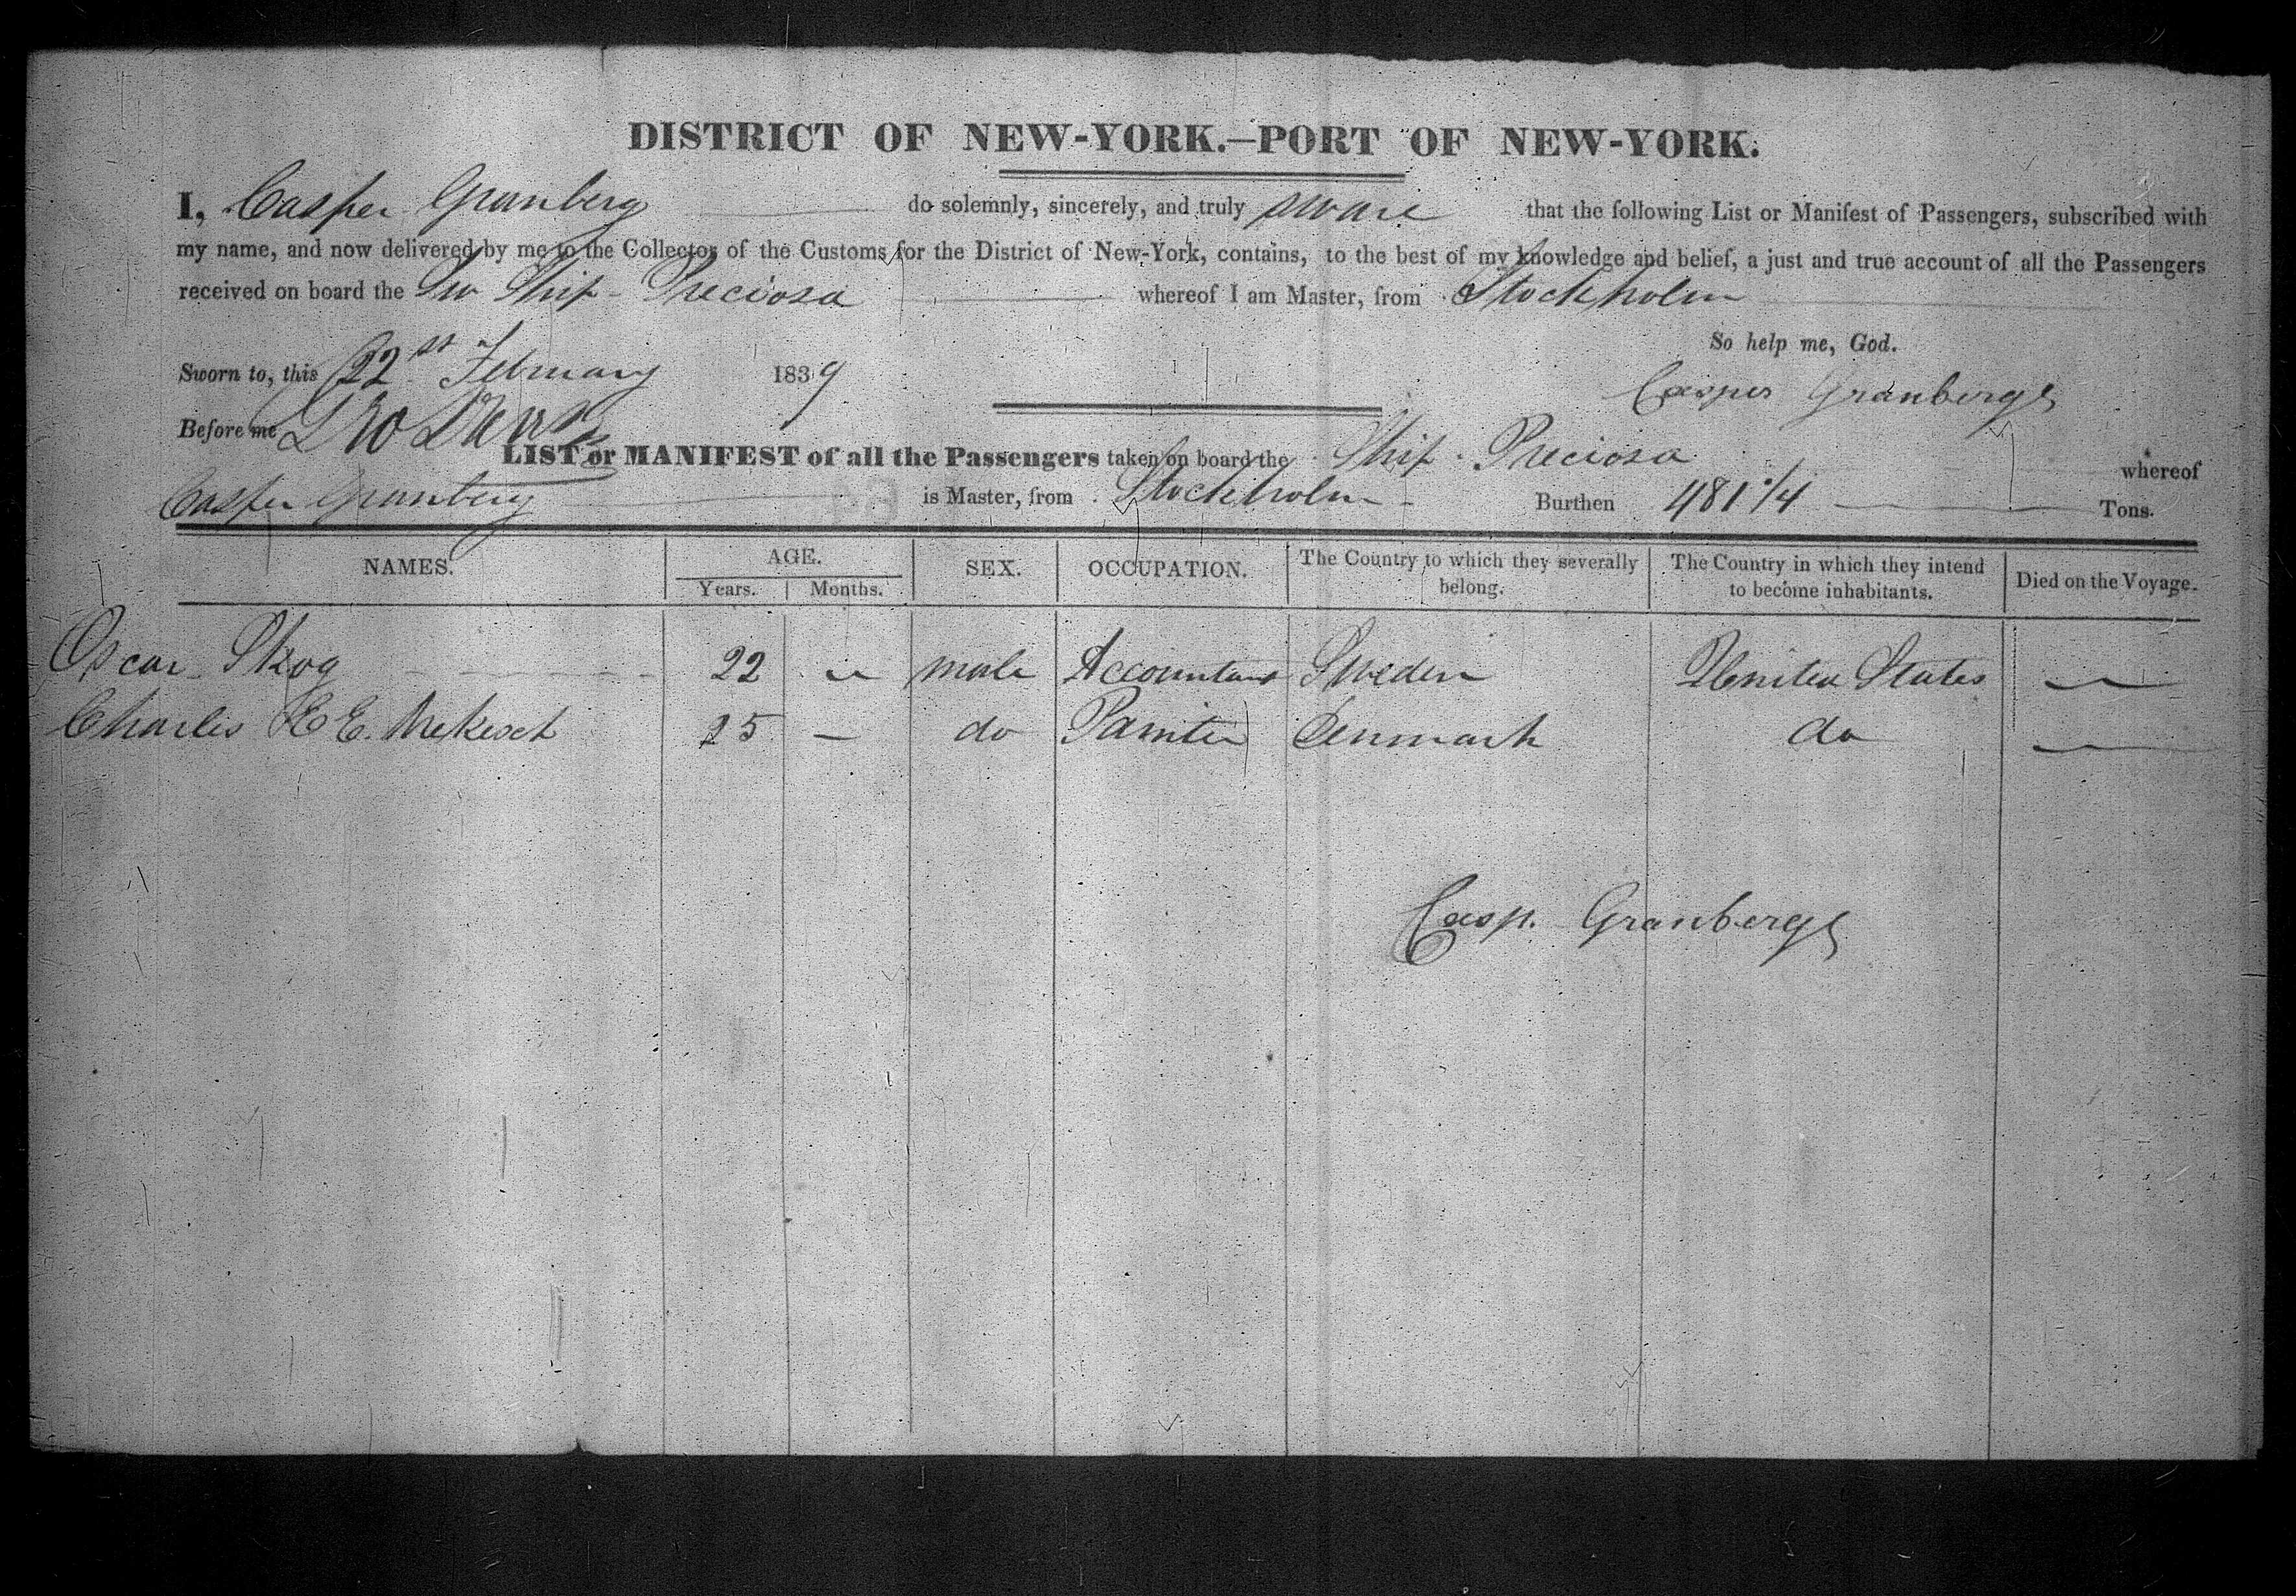 DISTRICT OF NEW-YORK.—PORT OF NEW-YORK.
I, Casper Granberg do solemnly, sincerely, and truly sware that the following List or Manifest of Passengers, subscribed with
my name, and now delivered by me to the Collector of the Customs for the District of New-York, contains, to the best of my knowledge and belief, a just and true account of all the Passengers
received on board the Sw Ship Preciosa whereof I am Master, from Stockholm
So help me, God.
Sworn to, this 22st February 1839
Casper Granberg
Before me
LIST or MANIFEST of all the Passengers taken on board the Ship Preciosa whereof
Casper Granberg is Master, from Stockholm Burthen 481 1/4 Tons.
NAMES. AGE. Years. Months. SEX. OCCUPATION. The Country to which they severally belong. The Country in which they intend to become inhabitants. Died on the Voyage.
Oscar Skog 22 — male Accountant Sweden United States —
Charles E. 25 — do Painter Denmark do —
Casp. Granberg